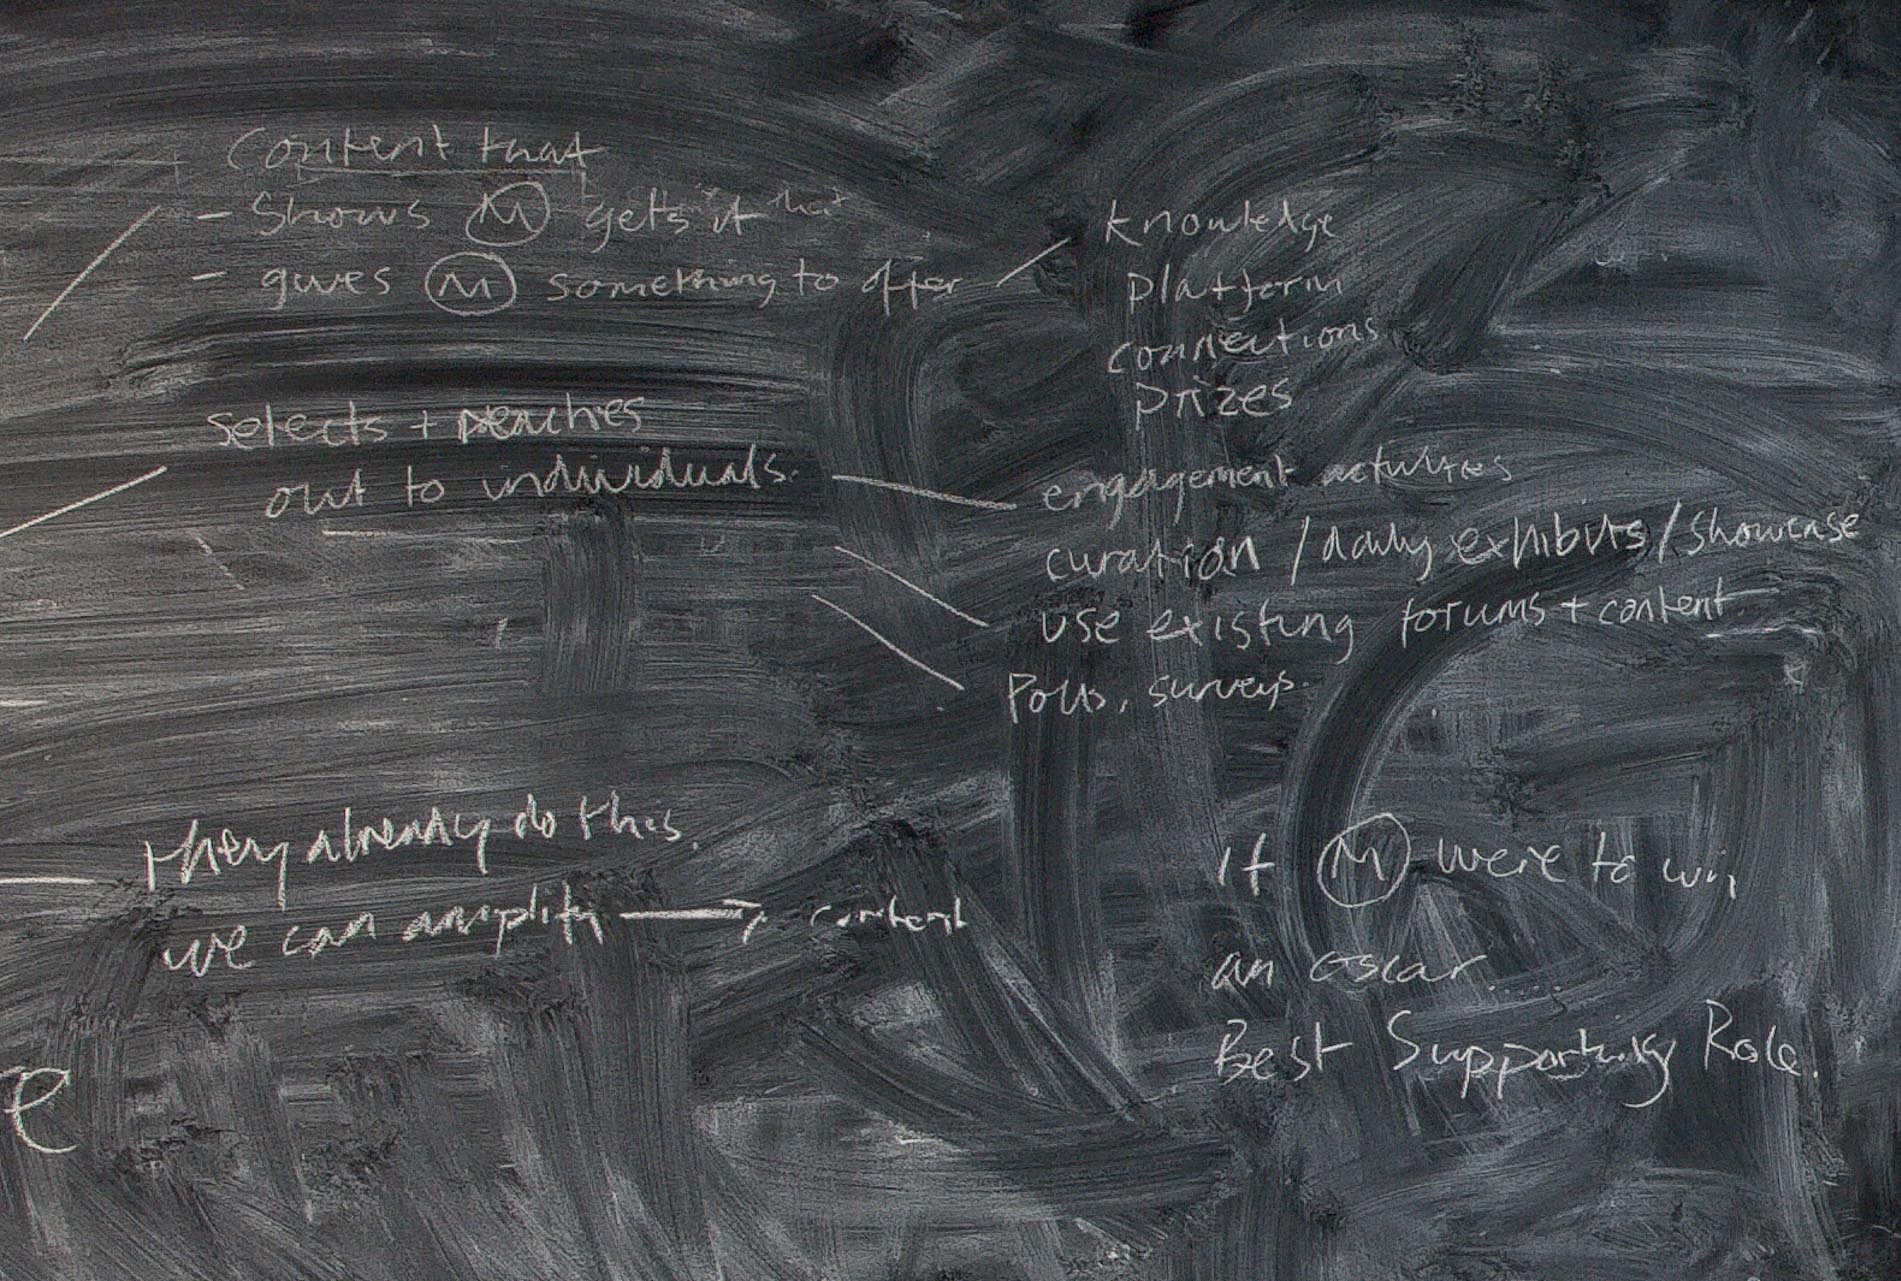 Content that
- Shows M gets it that
- gives M something to offer
knowledge
platform
connections
prizes
selects + reaches
out to individuals.
engagement activities
curation / daily exhibits / showcase
use existing forums + content
Polls, surveys.
they already do this.
we can amplify → content
If M were to win
an oscar......
Best Supporting Role.
e